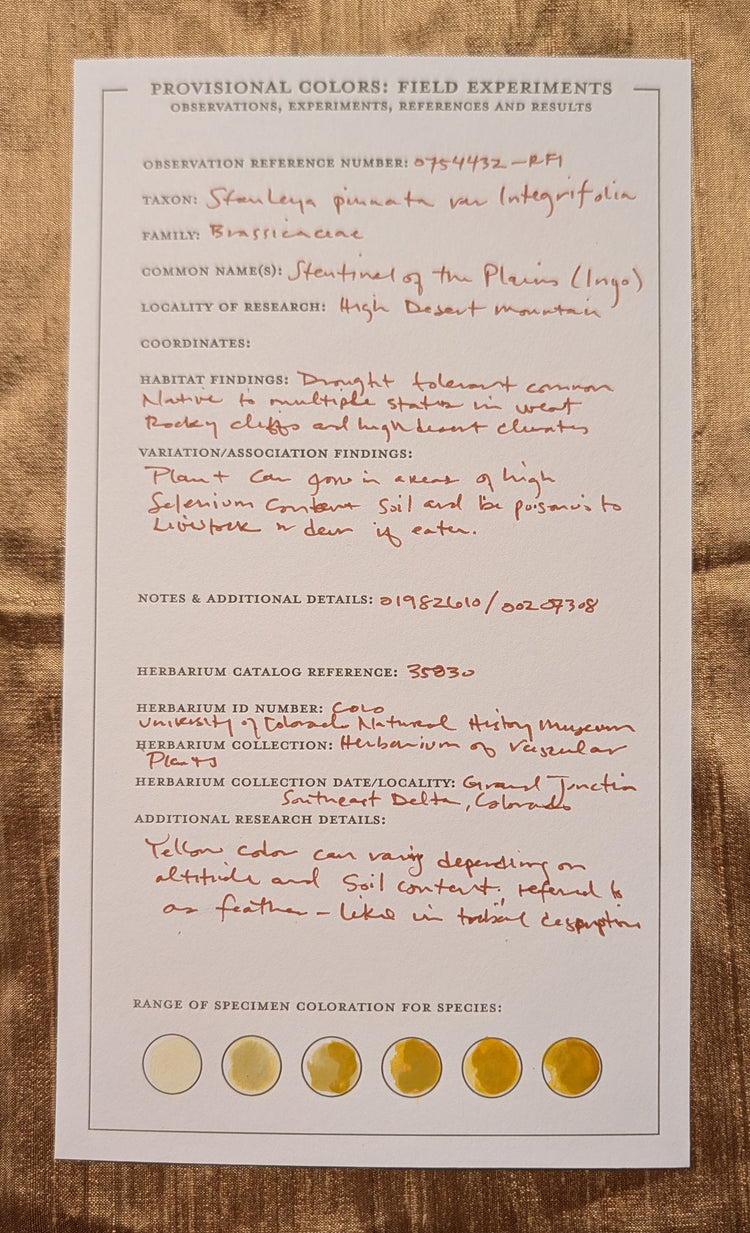 PROVISIONAL COLORS: FIELD EXPERIMENTS
OBSERVATIONS, EXPERIMENTS, REFERENCES AND RESULTS
OBSERVATION REFERENCE NUMBER: 0754432-RFI
TAXON: Stanleya pinnata var Integrifolia
FAMILY: Brassicaceae
COMMON NAME(S): Stentinel of the Plains (Ingo)
LOCALITY OF RESEARCH: High Desert mountain
COORDINATES:
HABITAT FINDINGS: Drought tolerant common
Native to multiple states in west
Rocky cliffs and high desert climates
VARIATION/ASSOCIATION FINDINGS:
Plant can grow in areas of high
Selenium content soil and be poisonous to
Livestock or deer if eaten.
NOTES & ADDITIONAL DETAILS: 01982610/00207308
HERBARIUM CATALOG REFERENCE: 35830
HERBARIUM ID NUMBER: COLO
University of Colorado Natural History Museum
HERBARIUM COLLECTION: Herbarium of Vascular
Plants
HERBARIUM COLLECTION DATE/LOCALITY: Grand Junction
Southeast Delta, Colorado
ADDITIONAL RESEARCH DETAILS:
Yellow color can vary depending on
altitude and soil content. referred to
as feather-like in tribal
RANGE OF SPECIMEN COLORATION FOR SPECIES: